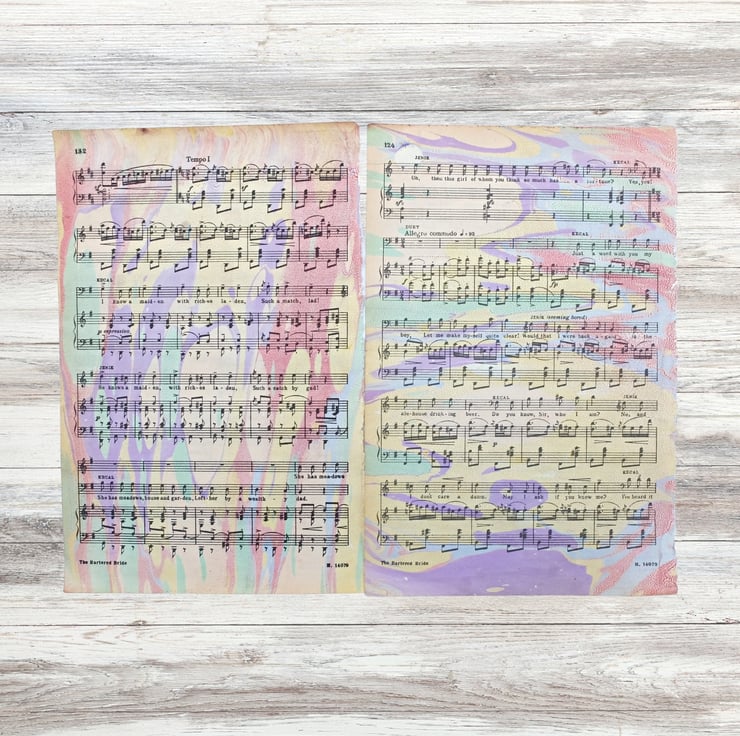 132
Tempo I
KECAL
I know a maid-en with rich-es la-den, Such a match, lad!
p espressivo
JENIK
He knows a maid-en, with rich-es la-den, Such a catch by gad!
She has meadows
KECAL
She has meadows, house and gar-den, Left her by a wealth-y dad.
The Bartered Bride
H. 14079
124
JENIK
KECAL
Oh, then this girl of whom you think so much has a for-tune? Yes, yes!
DUET
Allegro commodo ♩=92
KECAL
Just a word with you my
JENIK (seeming bored)
boy, Let me make my-self quite clear! Would that I were back a-gain in the
KECAL
JENIK
ale-house drink-ing beer. Do you know, Sir, who I am? No, and
KECAL
I dont care a damn. May I ask if you know me? I've heard it
The Bartered Bride
H. 14079